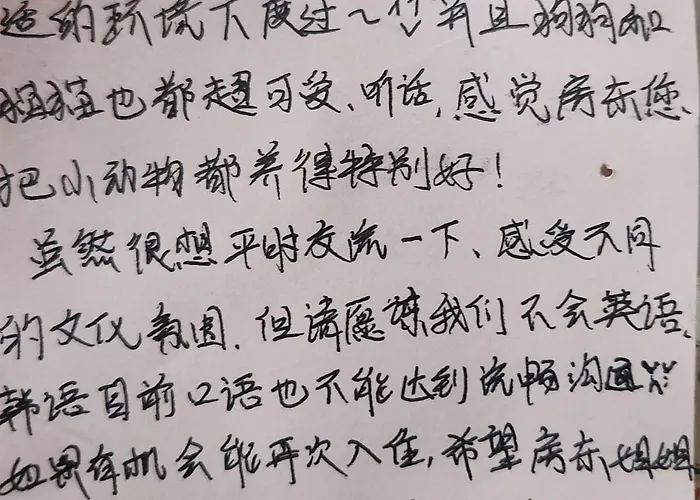 适的环境下度过~并且狗狗和
猫猫也都超可爱、听话,感觉房东您
把小动物都养得特别好!
虽然很想平时交流一下、感受不同
的文化氛围,但请原谅我们不会英语、
韩语目前口语也不能达到流畅沟通
如果有机会能再次入住,希望房东姐姐